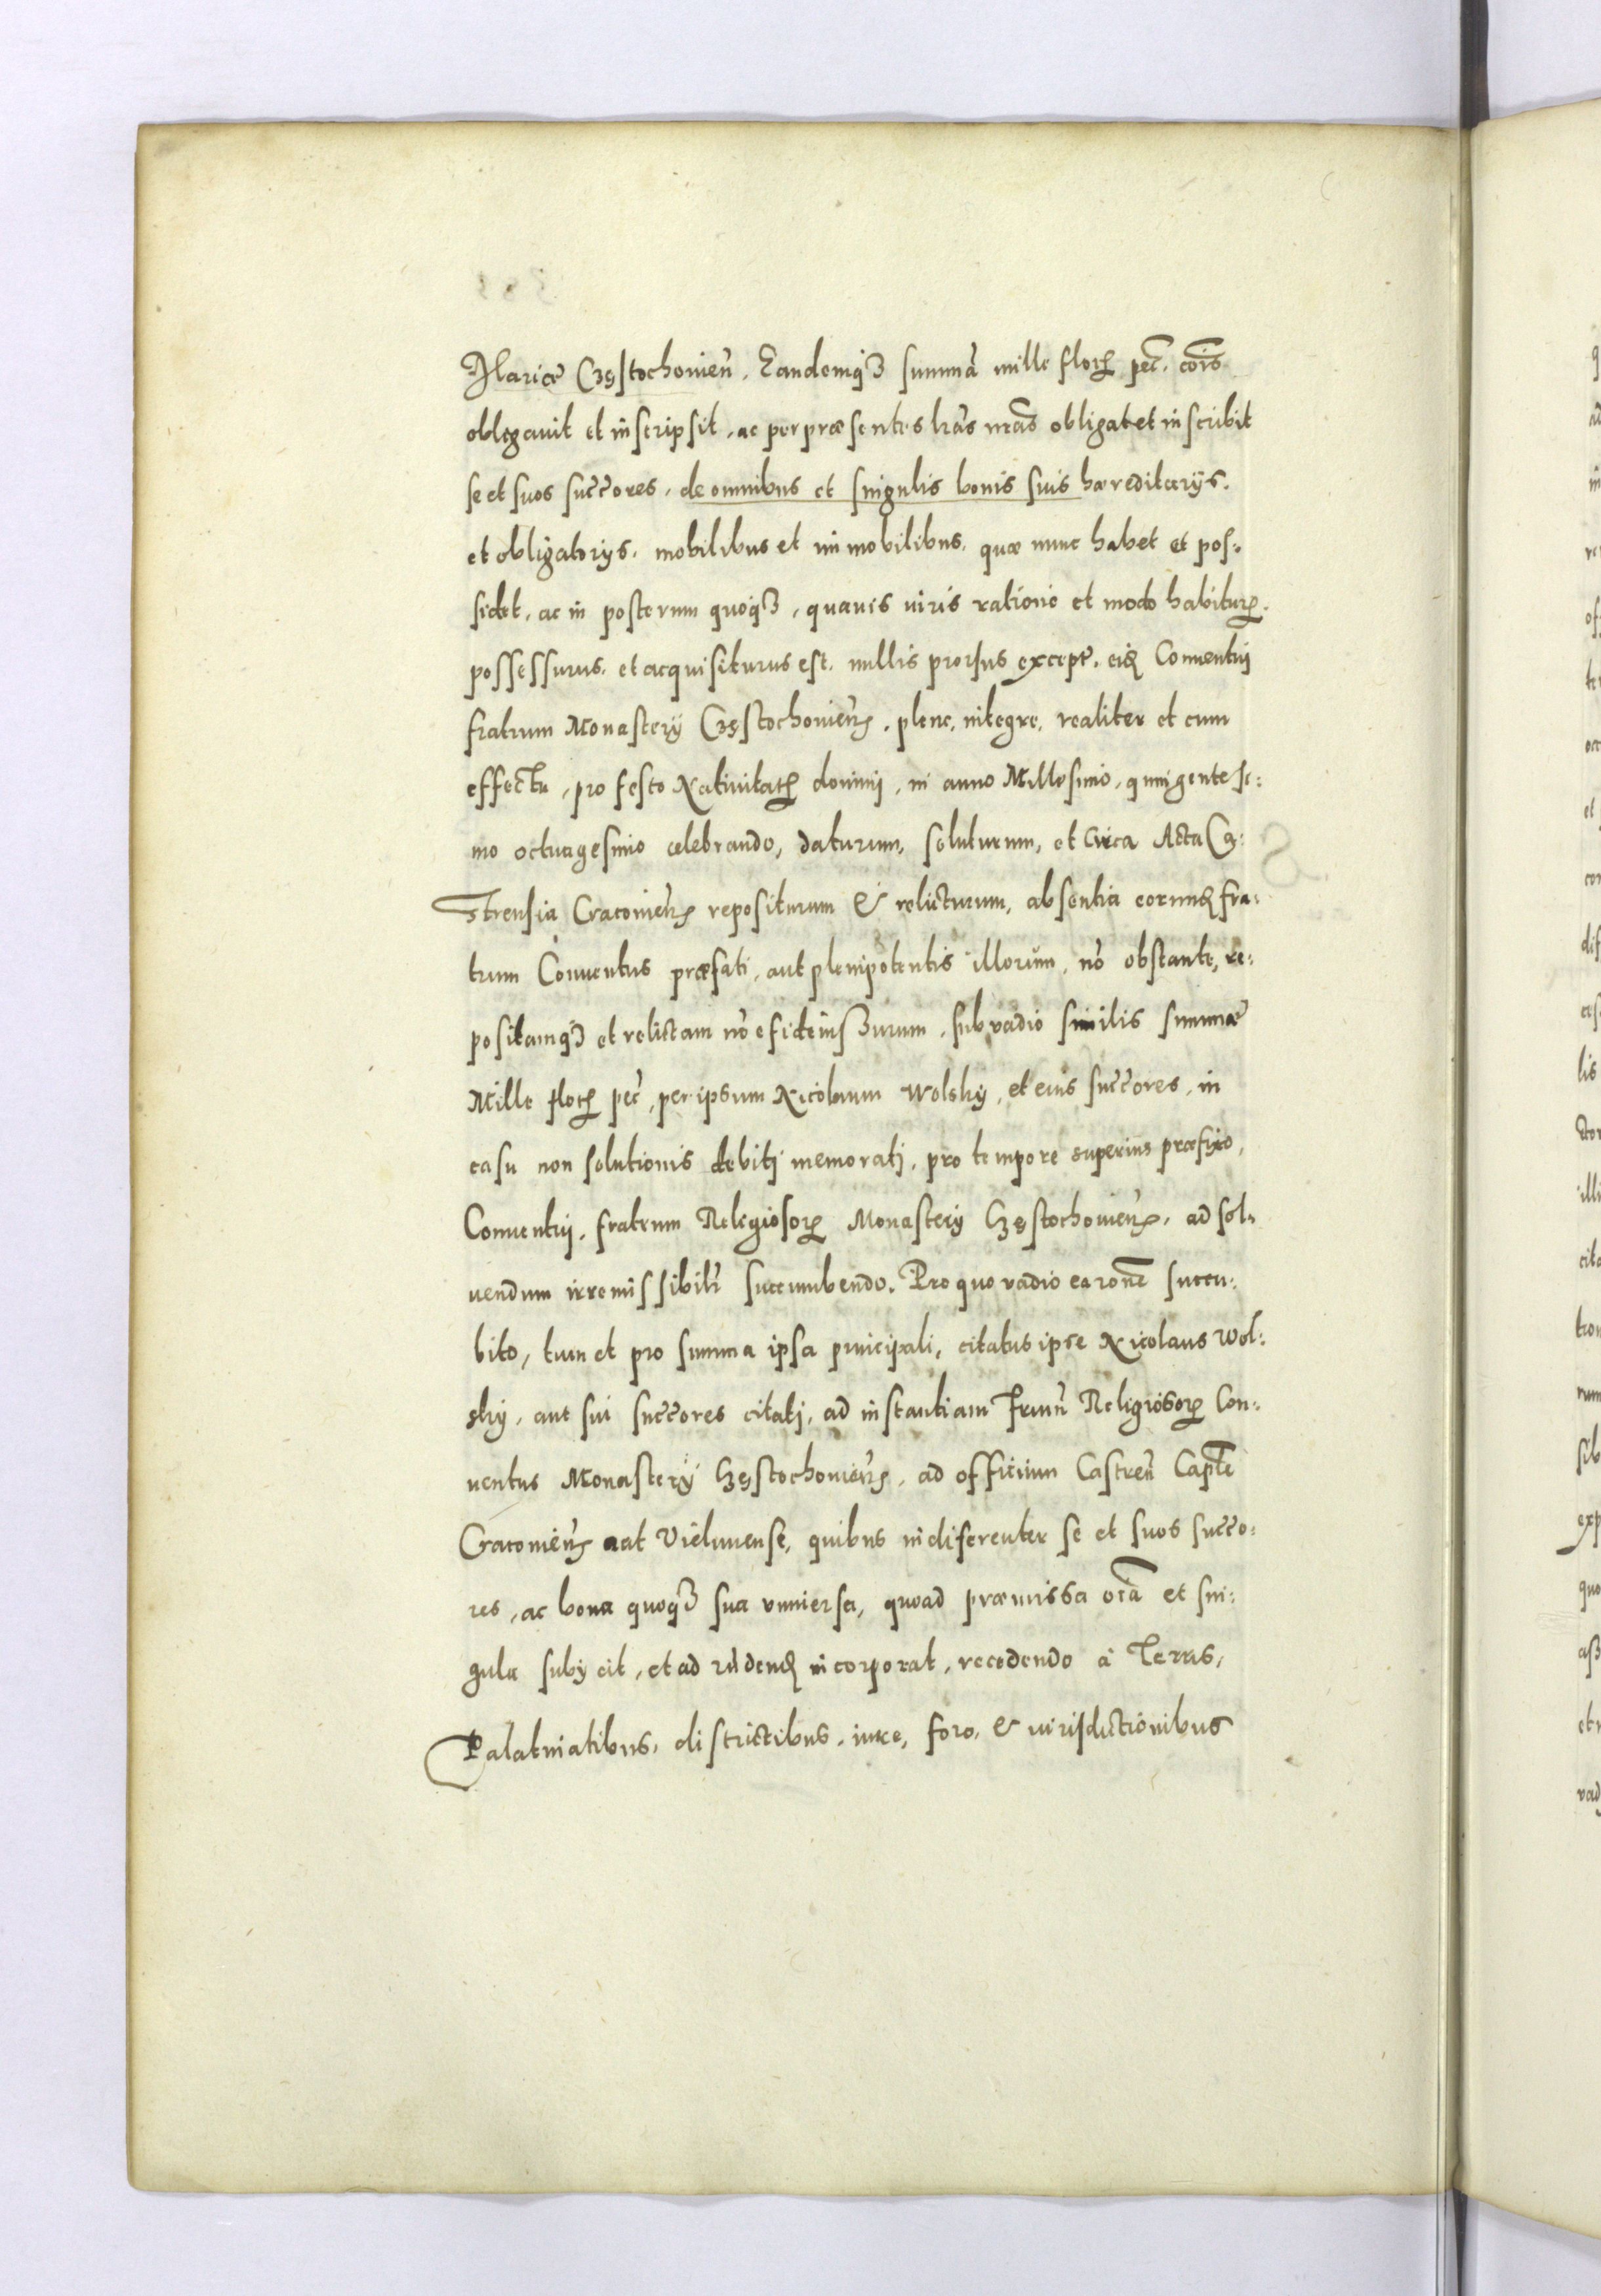 Mariæ Czȩstochovien̄. Eandemq3 summā mille floꝵ pec̄. cōis
obligavit et inscripsit, ac per præsentes lr̄as nr̄as obligat et inscribit
se et suos succ̄ores, de omnibus et singulis bonis suis hæreditarijs.
et obligatorijs, mobilibus et immobilibus, quæ nunc habet et pos-
sidet, ac in posterum quoq3, quavis iuris ratione et modo habituꝵ.
possessurus, et acquisiturus est, nullis prorsus except. eid Conventui
fratrum Monasterij Czȩstochovien̄, plene, integre, realiter et cum
effectu, pro festo Nativitatꝵ domini, in anno Millesimo, quingentesi-
mo octuagesimo celebrando, daturum, soluturum, et circa Acta Ca-
strensia Cracovien̄ repositurum & relicturum, absentia eorund fra-
trum Conventus præfati, aut plenipotentis illorum, nō obstante, re-
positamq3 et relictam nō efidemssurum, sub vadio similis summæ
Mille floꝵ pec̄, per ipsum Nicolaum Wolsky, et eius succ̄ores, in
casu non solutionis debiti memorati, pro tempore superius præfixo,
Conventui, fratrum Religiosoꝵ Monasterij Czȩstochovien̄, ad sol-
vendum irremissibilr̄ succumbendo. Pro quo vadio ea rōne succu-
bito, tum et pro summa ipsa principali, citatus ipse Nicolaus Wol-
sky, aut sui succ̄ores citati, ad instantiam frum̄ Religiosoꝵ Con-
ventus Monasterij Czȩstochovien̄, ad officium Castren̄ Capt̄le
Cracovien̄ aut Vielunense, quibus indiferenter se et suos succ̄o-
res, ac bona quoq3 sua universa, quoad præmissa oīa et sin-
gula subijcit, et ad rn̄dend incorporat, recedendo à Terris,
Palatinatibus, districtibus, iure, foro, & iurisdictionibus